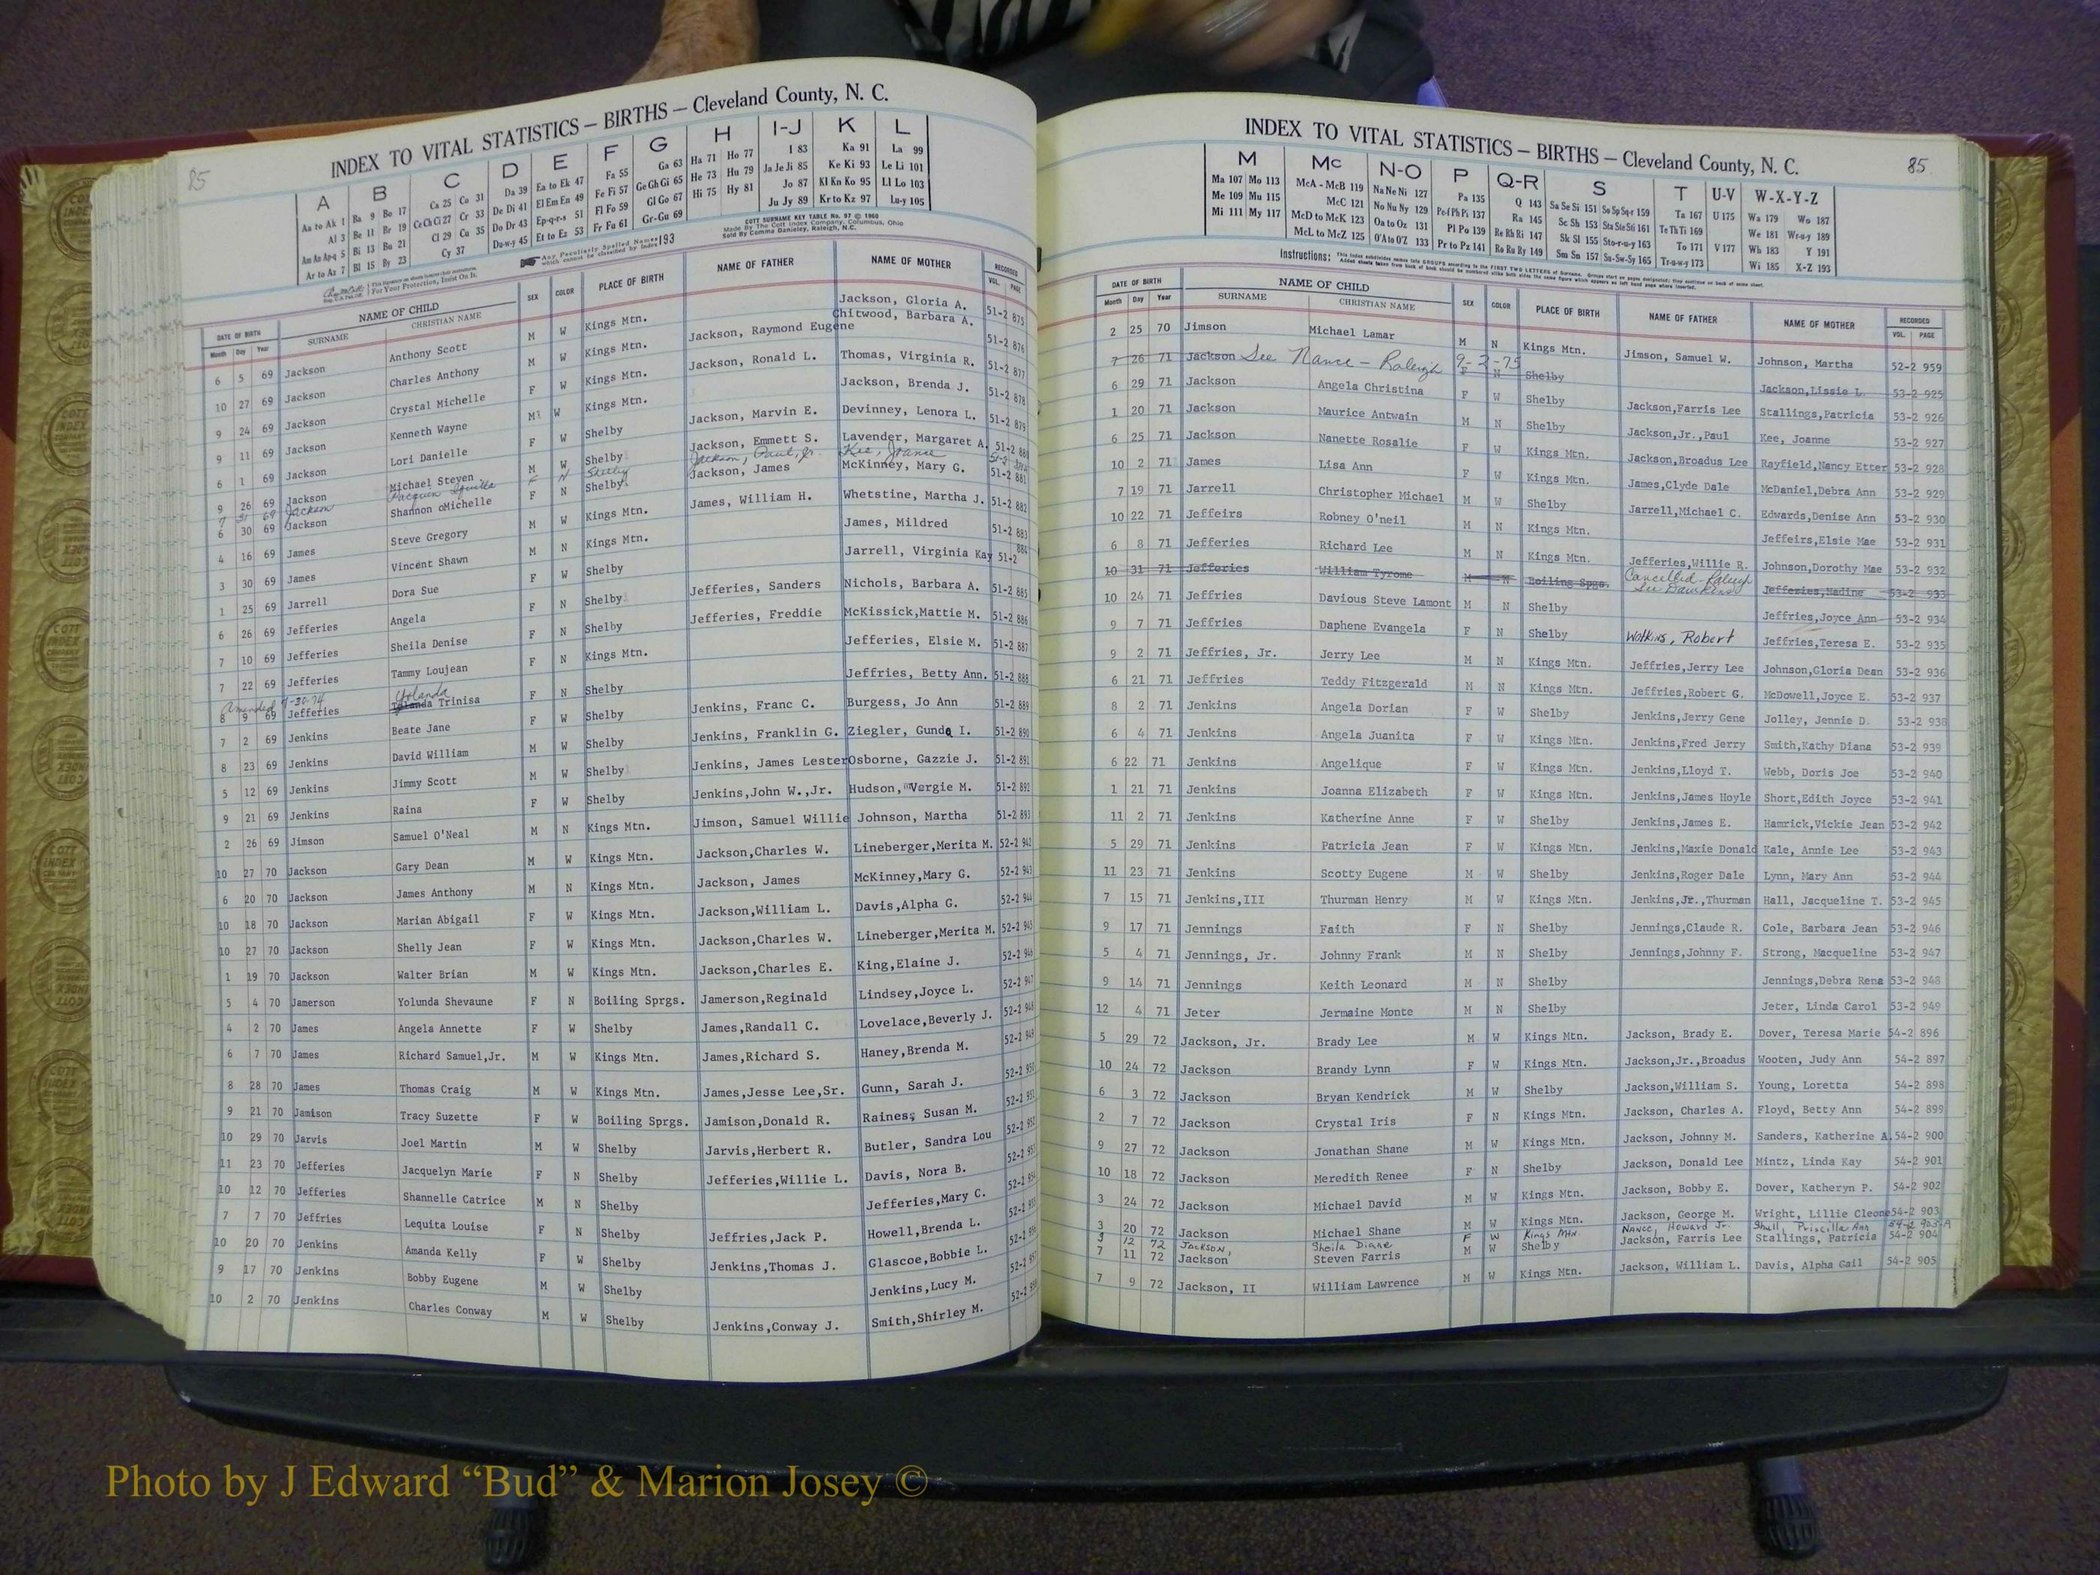 85
INDEX TO VITAL STATISTICS — BIRTHS — Cleveland County, N. C.
A B C D E F G H I-J K L
Aa to Ak 1 Ba 9 Bo 17 Ca 25 Co 31 Da 39 Ea to Ek 47 Fa 55 Ga 63 Ha 71 Ho 77 I 83 Ka 91 La 99
Al 3 Be 11 Br 19 Ce Ch Ci 27 Cr 33 De Di 41 El Em En 49 Fe Fi 57 Ge Gh Gi 65 He 73 Hu 79 Ja Je Ji 85 Ke Ki 93 Le Li 101
Am An Ap-q 5 Bi 13 Bu 21 Cl 29 Cu 35 Do Dr 43 Ep-q-r-s 51 Fl Fo 59 Gl Go 67 Hi 75 Hy 81 Jo 87 Kl Kn Ko 95 Ll Lo 103
Ar to Az 7 Bl 15 By 23 Cy 37 Du-w-y 45 Et to Ez 53 Fr Fu 61 Gr-Gu 69 Ju Jy 89 Kr to Kz 97 Lu-y 105
COTT SURNAME KEY TABLE No. 97 © 1960
Made By The Cott Index Company, Columbus, Ohio
Sold By Comma Danieley, Raleigh, N.C.
Any Peculiarly Spelled Names 193
which cannot be classified by Index
For Your Protection, Insist On It.
DATE OF BIRTH NAME OF CHILD SEX COLOR PLACE OF BIRTH NAME OF FATHER NAME OF MOTHER RECORDED
Month Day Year SURNAME CHRISTIAN NAME VOL. PAGE
6 5 69 Jackson Anthony Scott M W Kings Mtn. Jackson, Gloria A. 51-2 875
10 27 69 Jackson Charles Anthony M W Kings Mtn. Jackson, Raymond Eugene Chitwood, Barbara A. 51-2 876
9 24 69 Jackson Crystal Michelle F W Kings Mtn. Jackson, Ronald L. Thomas, Virginia R. 51-2 877
9 11 69 Jackson Kenneth Wayne M W Kings Mtn. Jackson, Brenda J. 51-2 878
6 1 69 Jackson Lori Danielle F W Shelby Jackson, Marvin E. Devinney, Lenora L. 51-2 879
9 26 69 Jackson Michael Steven M W Shelby Jackson, Emmett S. Lavender, Margaret A. 51-2 880
7 31 69 Jackson F N Shelby Jackson, Paul, Jr. Kee, Joanne
6 30 69 Jackson Shannon Michelle F N Shelby Jackson, James McKinney, Mary G. 51-2 881
4 16 69 James Steve Gregory M W Kings Mtn. James, William H. Whetstine, Martha J. 51-2 882
3 30 69 James Vincent Shawn M N Kings Mtn. James, Mildred 51-2 883
1 25 69 Jarrell Dora Sue F W Shelby Jarrell, Virginia Kay 51-2 884
6 26 69 Jefferies Angela F N Shelby Jefferies, Sanders Nichols, Barbara A. 51-2 885
7 10 69 Jefferies Sheila Denise F N Shelby Jefferies, Freddie McKissick,Mattie M. 51-2 886
7 22 69 Jefferies Tammy Loujean F N Kings Mtn. Jefferies, Elsie M. 51-2 887
Amended 7-30-74 Yolanda
8 9 69 Jefferies Trinisa F N Shelby Jeffries, Betty Ann. 51-2 888
7 2 69 Jenkins Beate Jane F W Shelby Jenkins, Franc C. Burgess, Jo Ann 51-2 889
8 23 69 Jenkins David William M W Shelby Jenkins, Franklin G. Ziegler, Gunde I. 51-2 890
5 12 69 Jenkins Jimmy Scott M W Shelby Jenkins, James Lester Osborne, Gazzie J. 51-2 891
9 21 69 Jenkins Raina F W Shelby Jenkins,John W.,Jr. Hudson, Vergie M. 51-2 892
2 26 69 Jimson Samuel O'Neal M N Kings Mtn. Jimson, Samuel Willie Johnson, Martha 51-2 893
10 27 70 Jackson Gary Dean M W Kings Mtn. Jackson,Charles W. Lineberger,Merita M. 52-2 942
6 20 70 Jackson James Anthony M N Kings Mtn. Jackson, James McKinney,Mary G. 52-2 943
10 18 70 Jackson Marian Abigail F W Kings Mtn. Jackson,William L. Davis,Alpha G. 52-2 944
10 27 70 Jackson Shelly Jean F W Kings Mtn. Jackson,Charles W. Lineberger,Merita M. 52-2 945
1 19 70 Jackson Walter Brian M W Kings Mtn. Jackson,Charles E. King,Elaine J. 52-2 946
5 4 70 Jamerson Yolunda Shevaune F N Boiling Sprgs. Jamerson,Reginald Lindsey,Joyce L. 52-2 947
4 2 70 James Angela Annette F W Shelby James,Randall C. Lovelace,Beverly J. 52-2 948
6 7 70 James Richard Samuel,Jr. M W Kings Mtn. James,Richard S. Haney,Brenda M. 52-2 949
8 28 70 James Thomas Craig M W Kings Mtn. James,Jesse Lee,Sr. Gunn, Sarah J. 52-2 950
9 21 70 Jamison Tracy Suzette F W Boiling Sprgs. Jamison,Donald R. Raines, Susan M. 52-2 951
10 29 70 Jarvis Joel Martin M W Shelby Jarvis,Herbert R. Butler, Sandra Lou 52-2 952
11 23 70 Jefferies Jacquelyn Marie F N Shelby Jefferies,Willie L. Davis, Nora B. 52-2 953
10 12 70 Jefferies Shannelle Catrice M N Shelby Jefferies,Mary C. 52-2 954
7 7 70 Jeffries Lequita Louise F N Shelby Jeffries,Jack P. Howell,Brenda L. 52-2 955
10 20 70 Jenkins Amanda Kelly F W Shelby Jenkins,Thomas J. Glascoe,Bobbie L. 52-2 956
9 17 70 Jenkins Bobby Eugene M W Shelby Jenkins,Lucy M. 52-2 957
10 2 70 Jenkins Charles Conway M W Shelby Jenkins,Conway J. Smith,Shirley M. 52-2 958
85
INDEX TO VITAL STATISTICS — BIRTHS — Cleveland County, N. C.
M Mc N-O P Q-R S T U-V W-X-Y-Z
Ma 107 Mo 113 McA - McB 119 Na Ne Ni 127 Pa 135 Q 143 Sa Se Si 151 So Sp Sq-r 159 Ta 167 U 175 Wa 179 Wo 187
Me 109 Mu 115 McC 121 No Nu Ny 129 Pe-f Ph Pi 137 Ra 145 Sc Sh 153 Sta Ste Sti 161 Te Th Ti 169 We 181 Wr-u-y 189
Mi 111 My 117 McD to McK 123 Oa to Oz 131 Pl Po 139 Re Rh Ri 147 Sk Sl 155 Sto-r-u-y 163 To 171 V 177 Wh 183 Y 191
McL to McZ 125 O'A to O'Z 133 Pr to Pz 141 Ro Ru Ry 149 Sm Sn 157 Su-Sw-Sy 165 Tr-u-w-y 173 Wi 185 X-Z 193
Instructions: This index subdivides names into GROUPS according to the FIRST TWO LETTERS of Surname.
DATE OF BIRTH NAME OF CHILD SEX COLOR PLACE OF BIRTH NAME OF FATHER NAME OF MOTHER RECORDED
Month Day Year SURNAME CHRISTIAN NAME VOL. PAGE
2 25 70 Jimson Michael Lamar M N Kings Mtn. Jimson, Samuel W. Johnson, Martha 52-2 959
7 26 71 Jackson See Nance - Raleigh 9-2-75 F N Shelby Jackson,Lissie L. 53-2 925
6 29 71 Jackson Angela Christina F W Shelby Jackson,Farris Lee Stallings,Patricia 53-2 926
1 20 71 Jackson Maurice Antwain M N Shelby Jackson,Jr.,Paul Kee, Joanne 53-2 927
6 25 71 Jackson Nanette Rosalie F W Kings Mtn. Jackson,Broadus Lee Rayfield,Nancy Etter 53-2 928
10 2 71 James Lisa Ann F W Kings Mtn. James,Clyde Dale McDaniel,Debra Ann 53-2 929
7 19 71 Jarrell Christopher Michael M W Shelby Jarrell,Michael C. Edwards,Denise Ann 53-2 930
10 22 71 Jeffeirs Robney O'neil M N Kings Mtn. Jeffeirs,Elsie Mae 53-2 931
6 8 71 Jefferies Richard Lee M N Kings Mtn. Jefferies,Willie R. Johnson,Dorothy Mae 53-2 932
10 31 71 Jefferies William Tyrome M N Boiling Spgs. Cancelled-Raleigh See Dawkins Jefferies,Nadine 53-2 933
10 24 71 Jeffries Davious Steve Lamont M N Shelby Jeffries,Joyce Ann 53-2 934
9 7 71 Jeffries Daphene Evangela F N Shelby Watkins, Robert Jeffries,Teresa E. 53-2 935
9 2 71 Jeffries, Jr. Jerry Lee M N Kings Mtn. Jeffries,Jerry Lee Johnson,Gloria Dean 53-2 936
6 21 71 Jeffries Teddy Fitzgerald M N Kings Mtn. Jeffries,Robert G. McDowell,Joyce E. 53-2 937
8 2 71 Jenkins Angela Dorian F W Shelby Jenkins,Jerry Gene Jolley, Jennie D. 53-2 938
6 4 71 Jenkins Angela Juanita F W Kings Mtn. Jenkins,Fred Jerry Smith,Kathy Diana 53-2 939
6 22 71 Jenkins Angelique F W Kings Mtn. Jenkins,Lloyd T. Webb, Doris Joe 53-2 940
1 21 71 Jenkins Joanna Elizabeth F W Kings Mtn. Jenkins,James Hoyle Short,Edith Joyce 53-2 941
11 2 71 Jenkins Katherine Anne F W Shelby Jenkins,James E. Hamrick,Vickie Jean 53-2 942
5 29 71 Jenkins Patricia Jean F W Kings Mtn. Jenkins,Maxie Donald Kale, Annie Lee 53-2 943
11 23 71 Jenkins Scotty Eugene M W Shelby Jenkins,Roger Dale Lynn, Mary Ann 53-2 944
7 15 71 Jenkins,III Thurman Henry M W Kings Mtn. Jenkins,Jr.,Thurman Hall, Jacqueline T. 53-2 945
9 17 71 Jennings Faith F N Shelby Jennings,Claude R. Cole, Barbara Jean 53-2 946
5 4 71 Jennings, Jr. Johnny Frank M N Shelby Jennings,Johnny F. Strong, Macqueline 53-2 947
9 14 71 Jennings Keith Leonard M N Shelby Jennings,Debra Rena 53-2 948
12 4 71 Jeter Jermaine Monte M N Shelby Jeter, Linda Carol 53-2 949
5 29 72 Jackson, Jr. Brady Lee M W Kings Mtn. Jackson, Brady E. Dover, Teresa Marie 54-2 896
10 24 72 Jackson Brandy Lynn F W Kings Mtn. Jackson,Jr.,Broadus Wooten, Judy Ann 54-2 897
6 3 72 Jackson Bryan Kendrick M W Shelby Jackson,William S. Young, Loretta 54-2 898
2 7 72 Jackson Crystal Iris F N Kings Mtn. Jackson, Charles A. Floyd, Betty Ann 54-2 899
9 27 72 Jackson Jonathan Shane M W Kings Mtn. Jackson, Johnny M. Sanders, Katherine A. 54-2 900
10 18 72 Jackson Meredith Renee F N Shelby Jackson, Donald Lee Mintz, Linda Kay 54-2 901
3 24 72 Jackson Michael David M W Kings Mtn. Jackson, Bobby E. Dover, Katheryn P. 54-2 902
3 20 72 Jackson Michael Shane M W Kings Mtn. Jackson, George M. Wright, Lillie Cleone 54-2 903
3 12 72 Jackson, Sheila Diane F W Kings Mtn. Nance, Howard Jr. Shull, Priscilla Ann 54-2 903-A
7 11 72 Jackson Steven Farris M W Shelby Jackson, Farris Lee Stallings, Patricia 54-2 904
7 9 72 Jackson, II William Lawrence M W Kings Mtn. Jackson, William L. Davis, Alpha Gail 54-2 905
Photo by J Edward “Bud” & Marion Josey ©